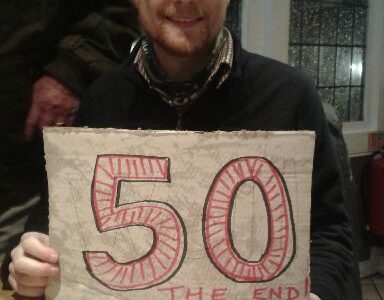 50
THE END!